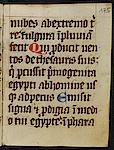 nubes ab extremo t
re fulgura i pluuia
fecit Qui p̄ducit ven
tos de thesauris suis
q̄ percussit p̄mogenita
egypti ab homine us
q̄ ad pecus Emisit
signa & p̄digia i medi
o tui egypte i phara
175